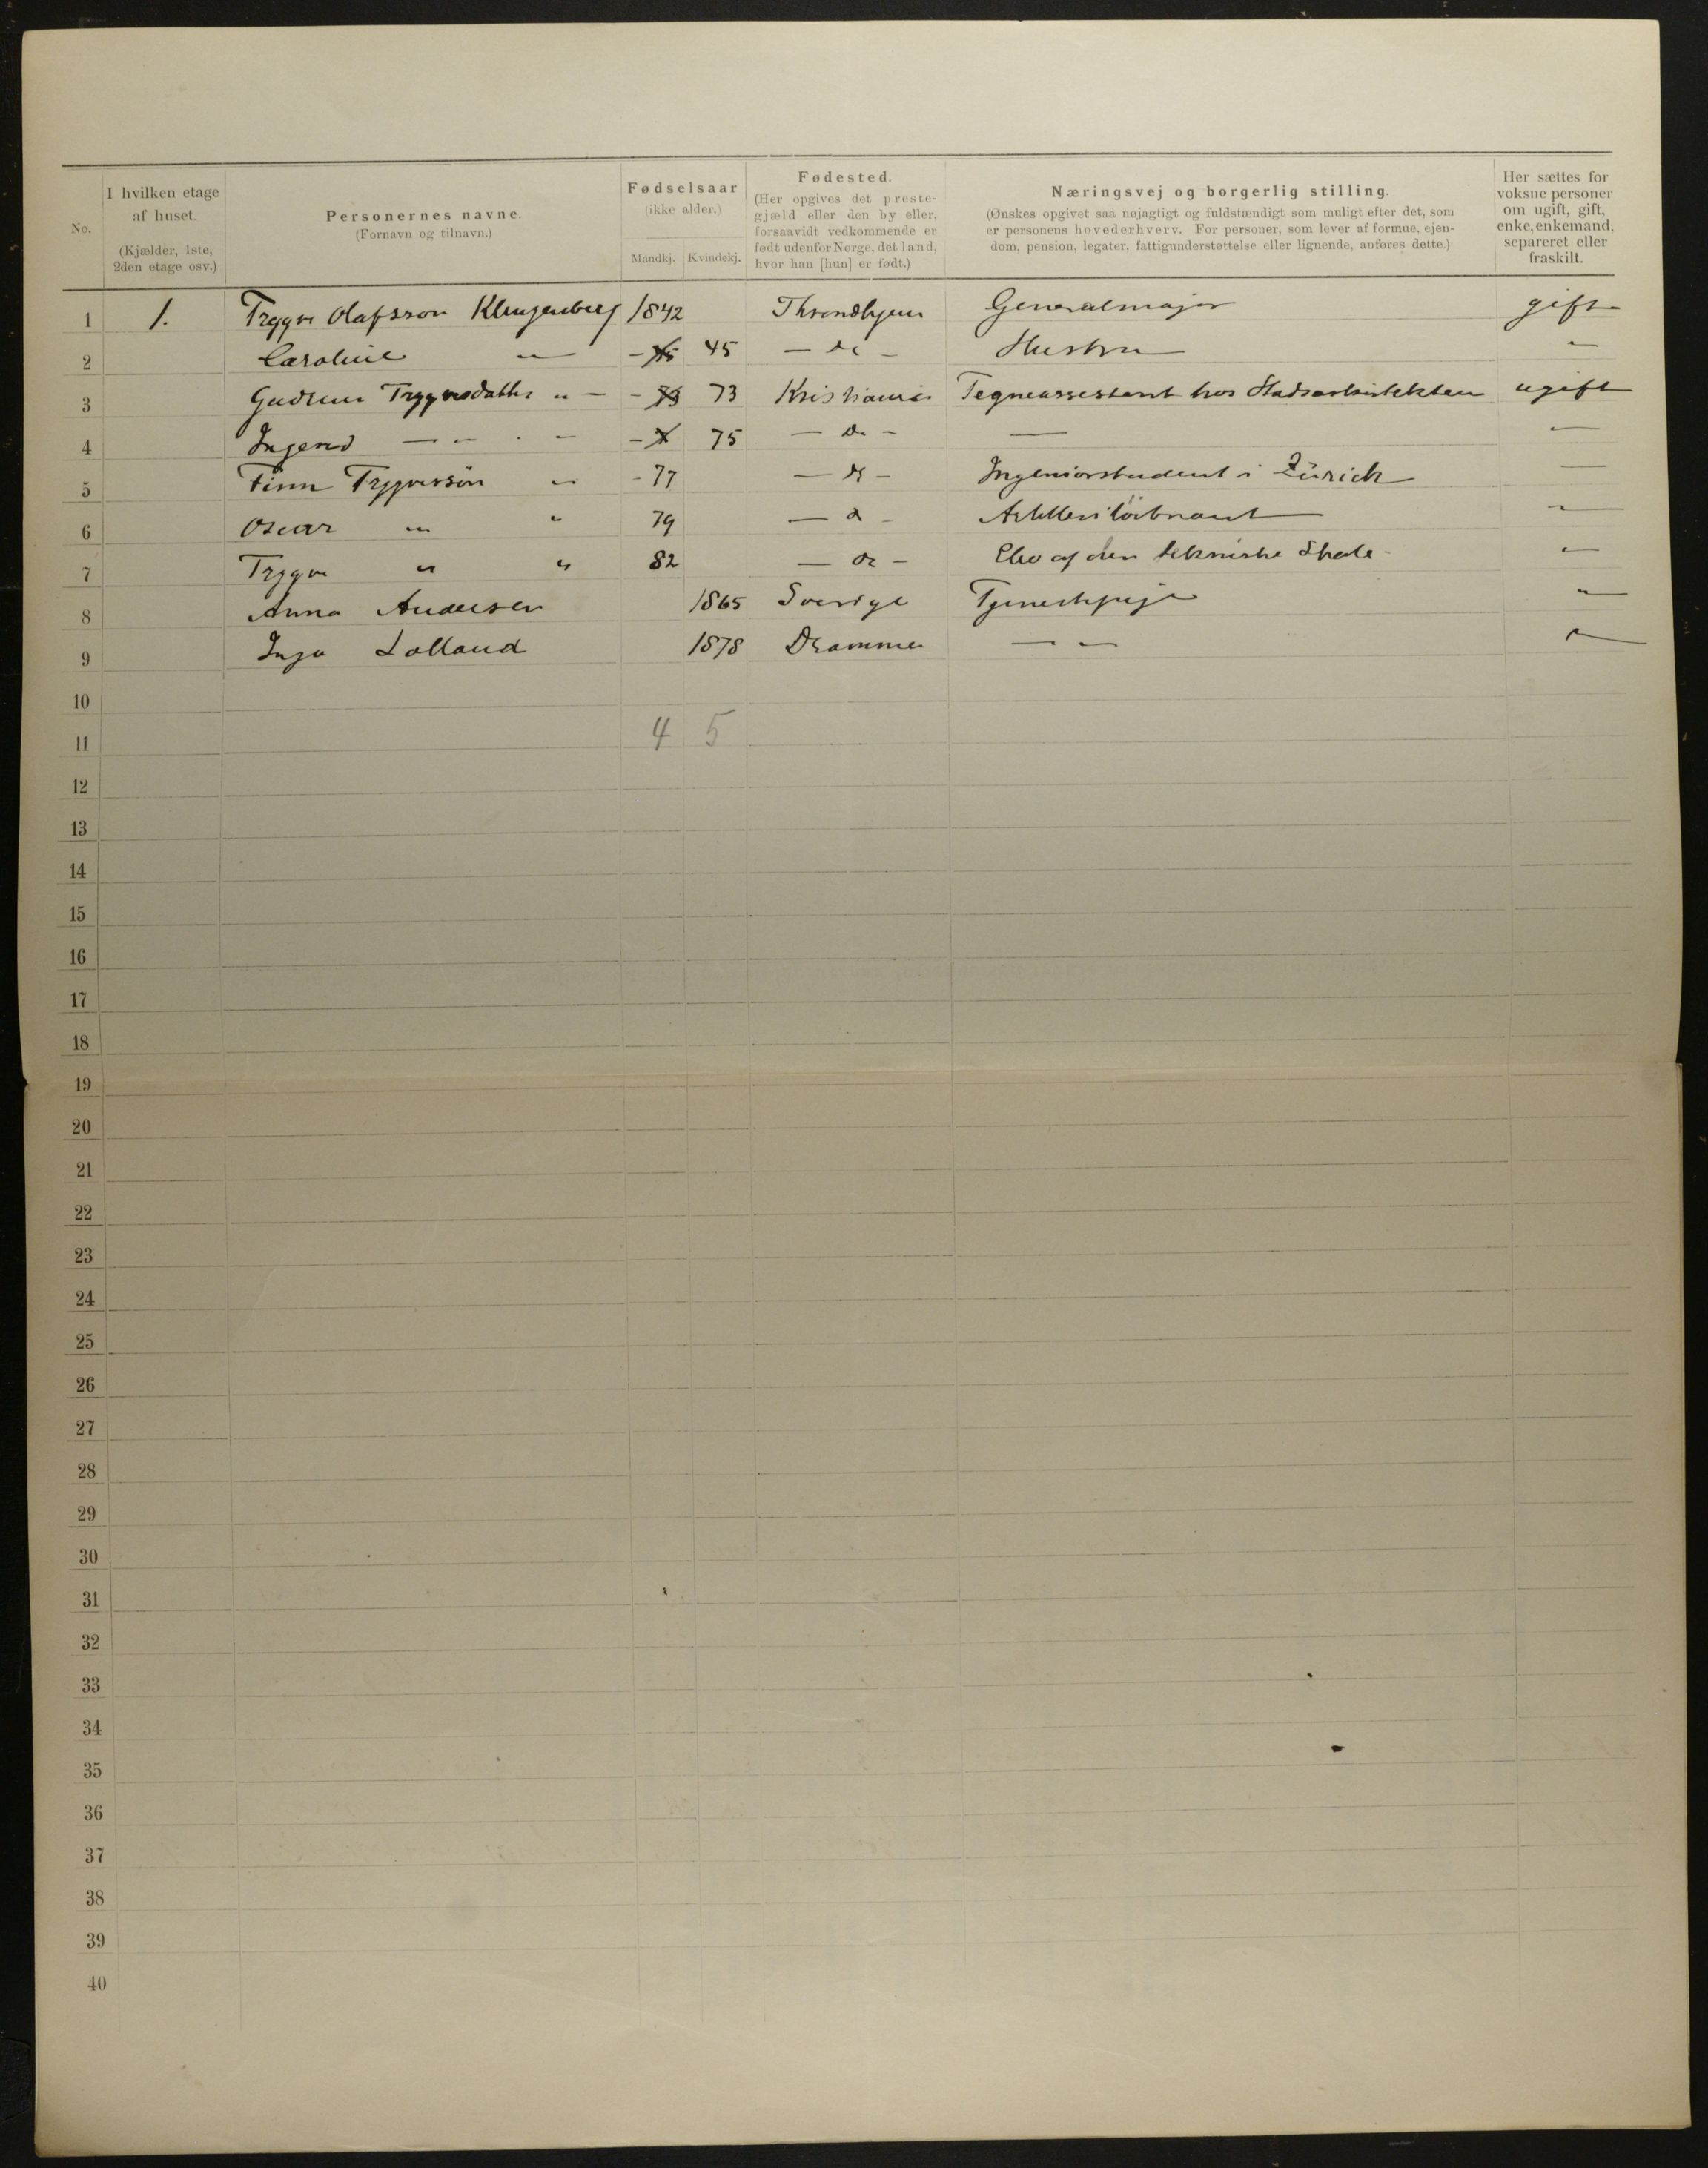 No.
I hvilken etage af huset.
(Kjælder, 1ste, 2den etage osv.)
Personernes navne.
(Fornavn og tilnavn.)
Fødselsaar
(ikke alder.)
Mandkj. Kvindekj.
Fødested.
(Her opgives det preste-
gjæld eller den by eller,
forsaavidt vedkommende er
født udenfor Norge, det land,
hvor han [hun] er født.)
Næringsvej og borgerlig stilling.
(Ønskes opgivet saa nøjagtigt og fuldstændigt som muligt efter det, som
er personens hovederhverv. For personer, som lever af formue, ejen-
dom, pension, legater, fattigunderstøttelse eller lignende, anføres dette.)
Her sættes for
voksne personer
om ugift, gift,
enke, enkemand,
separeret eller
fraskilt.
1 1. Trygve Olafsson Klingenberg 1842 Throndhjem Generalmajor gift
2 Caroline " - 45 45 - do - Hustru "
3 Gudrun Trygvesdatter " - - 73 73 Kristiania Tegneassistent hos Stadsarkitekten ugift
4 Ingerid - " - " - 75 - do - — —
5 Finn Trygvessøn " - 77 - do - Ingeniørstudent i Zürich —
6 Oscar " " 79 - do - Artilleriløitnant "
7 Trygve " " 82 - do - Elev af den tekniske Skole - "
8 Anna Andersen 1865 Sverige Tjenestepige "
9 Inga Lolland 1878 Drammen - " - "
10
11 4 5
12
13
14
15
16
17
18
19
20
21
22
23
24
25
26
27
28
29
30
31
32
33
34
35
36
37
38
39
40